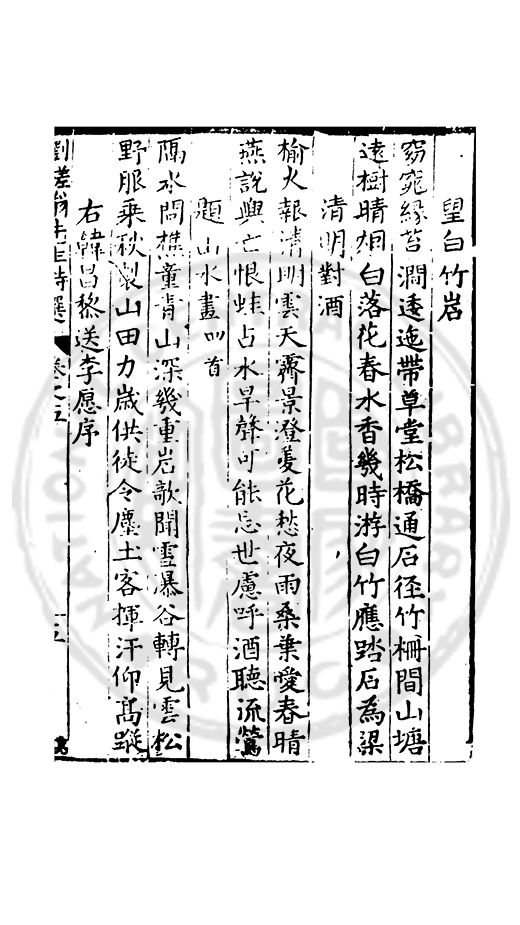 望白竹岩
窈窕緣苔澗逶迤帶草堂松橋通石徑竹柵間山塘
遠樹晴烟白落花春水香幾時游白竹應踏石為梁
清明對酒
榆火報清明雲天霽景澄菱花愁夜雨桑葉愛春晴
燕說興亡恨蛙占水旱聲可能忘世慮呼酒聽流鶯
題山水畫四首
隔水問樵童青山深幾重岩歌聞雪瀑谷轉見雲松
野服乘秋製山田力歲供徒令塵土客揮汗仰高蹤
右韓昌黎送李愿序
劉槎翁先生詩選 卷之五